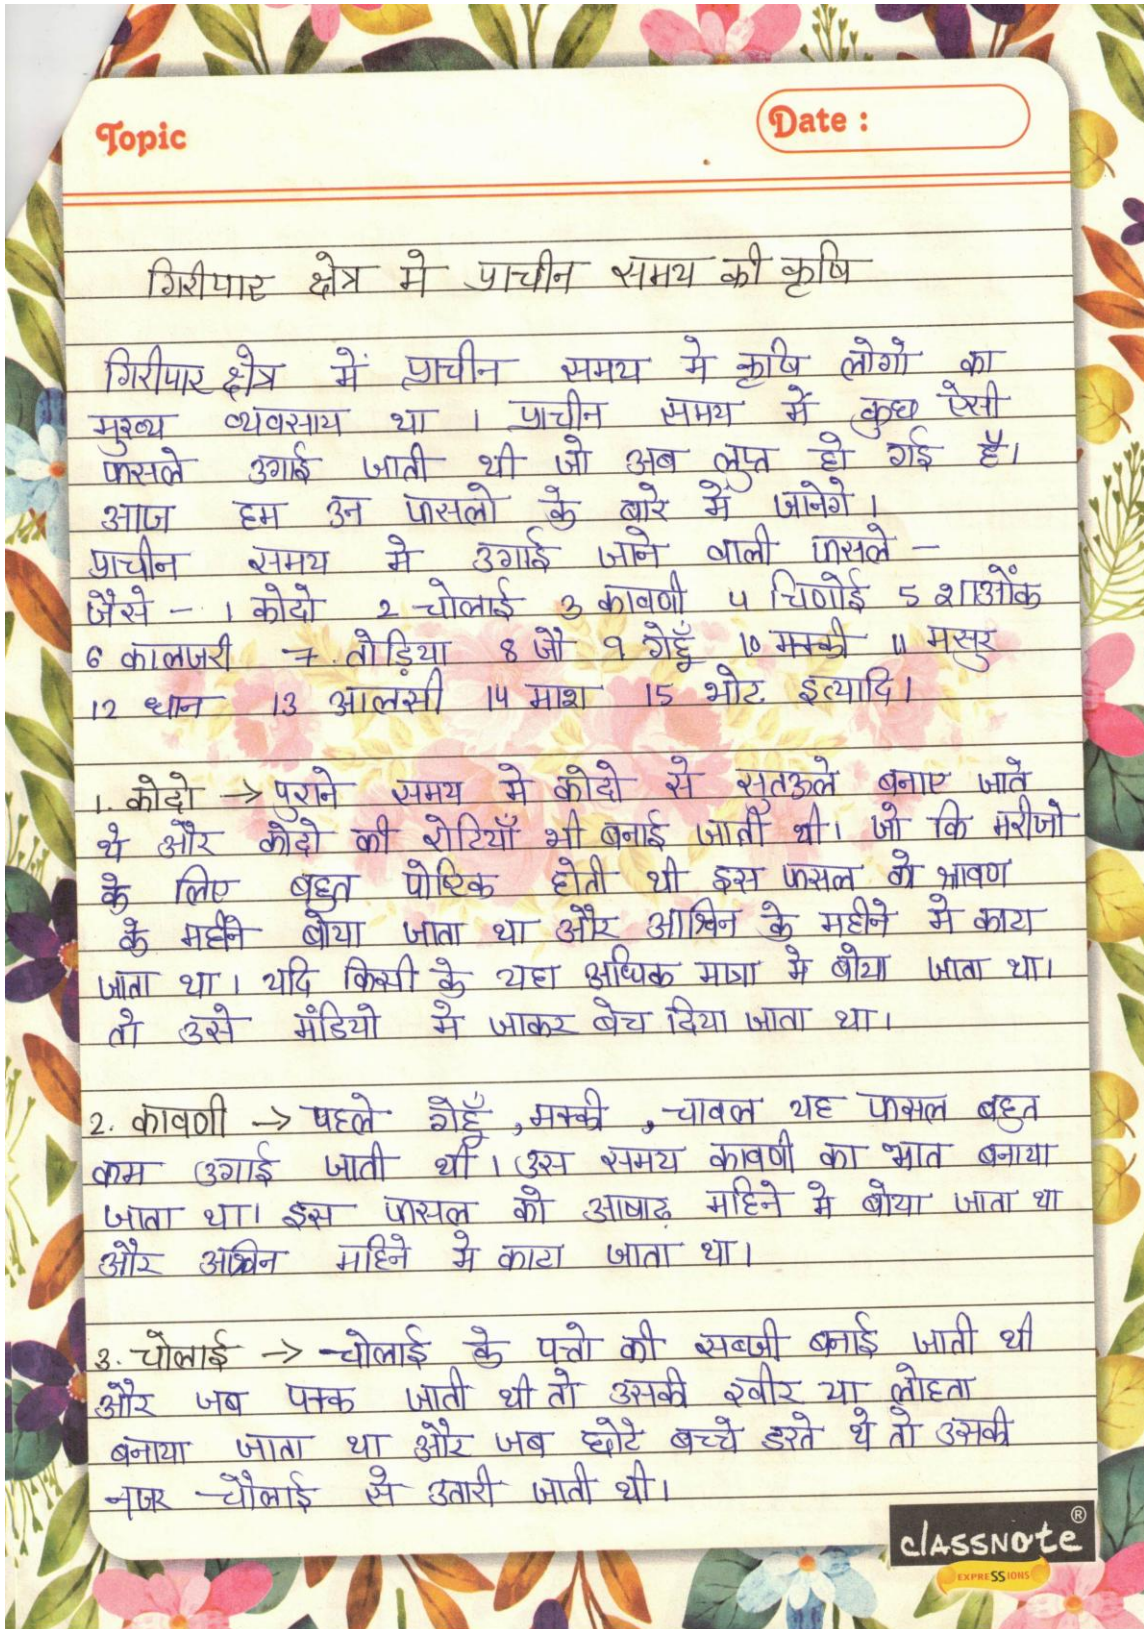 Topic
Date :
गिरीपार क्षेत्र मे प्राचीन समय की कृषि
गिरीपार क्षेत्र में प्राचीन समय मे कृषि लोगो का
मुख्य व्यवसाय था । प्राचीन समय में कुछ ऐसी
फसले उगाई जाती थी जो अब लुप्त हो गई है।
आज हम उन फसलो के बारे में जानेगे ।
प्राचीन समय मे उगाई जाने वाली फसले -
जैसे - 1 कोदो 2 चोलाई 3 कावणी 4 चिणोई 5 शाओंक
6 कालजरी 7. तोड़िया 8 जौ 9 गेहूँ 10 मक्की 11 मसुर
12 धान 13 आलसी 14 माश 15 भोट इत्यादि।
1. कोदो → पुराने समय मे कोदो से सुतऊले बनाए जाते
थे और कोदो की रोटियाँ भी बनाई जाती थी। जो कि मरीजो
के लिए बहुत पोष्टिक होती थी इस फसल को श्रावण
के महीने बोया जाता था और आश्विन के महीने मे काटा
जाता था। यदि किसी के यहा अधिक मात्रा मे बोया जाता था।
तो उसे मंडियो मे जाकर बेच दिया जाता था।
2. कावणी → पहले गेहूँ , मक्की , चावल यह फसल बहुत
कम उगाई जाती थी। उस समय कावणी का भात बनाया
जाता था। इस फसल को आषाढ़ महिने मे बोया जाता था
और आश्विन महिने मे काटा जाता था।
3. चोलाई → चोलाई के पत्तो की सब्जी बनाई जाती थी
और जब पक्क जाती थी तो उसकी खीर या लोहता
बनाया जाता था और जब छोटे बच्चे डरते थे तो उसकी
नजर चौलाई से उतारी जाती थी।
classnote ®
EXPRESSIONS